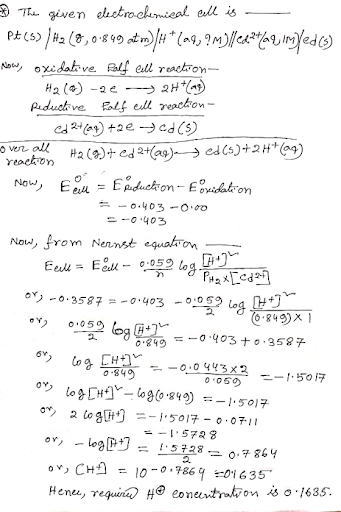 ⊛ The given electrochemical cell is —
Pt(s)/H2(g, 0.849 atm)/H+(aq, ?M)//Cd2+(aq, 1M)/Cd(s)
Now, oxidative half cell reaction—
H2(g) -2e → 2H+(aq)
Reductive half cell reaction—
Cd2+(aq) +2e → Cd(s)
over all reaction H2(g) + Cd2+(aq) → Cd(s) + 2H+(aq)
Now, E°cell = E°Reduction - E°oxidation
= -0.403 -0.00
= -0.403
Now, from Nernst equation —
Ecell = E°cell - 0.059/n log [H+]²/PH2×[Cd2+]
or, -0.3587 = -0.403 - 0.059/2 log [H+]²/(0.849)×1
or, 0.059/2 log [H+]²/0.849 = -0.403 + 0.3587
or, log [H+]²/0.849 = -0.0443×2/0.059 = -1.5017
or, log[H+]² - log(0.849) = -1.5017
or, 2 log[H+] = -1.5017 - 0.0711
= -1.5728
or, -log[H+] = 1.5728/2 = 0.7864
or, [H+] = 10-0.7864 = 0.1635
Hence, required H⊕ concentration is 0.1635.